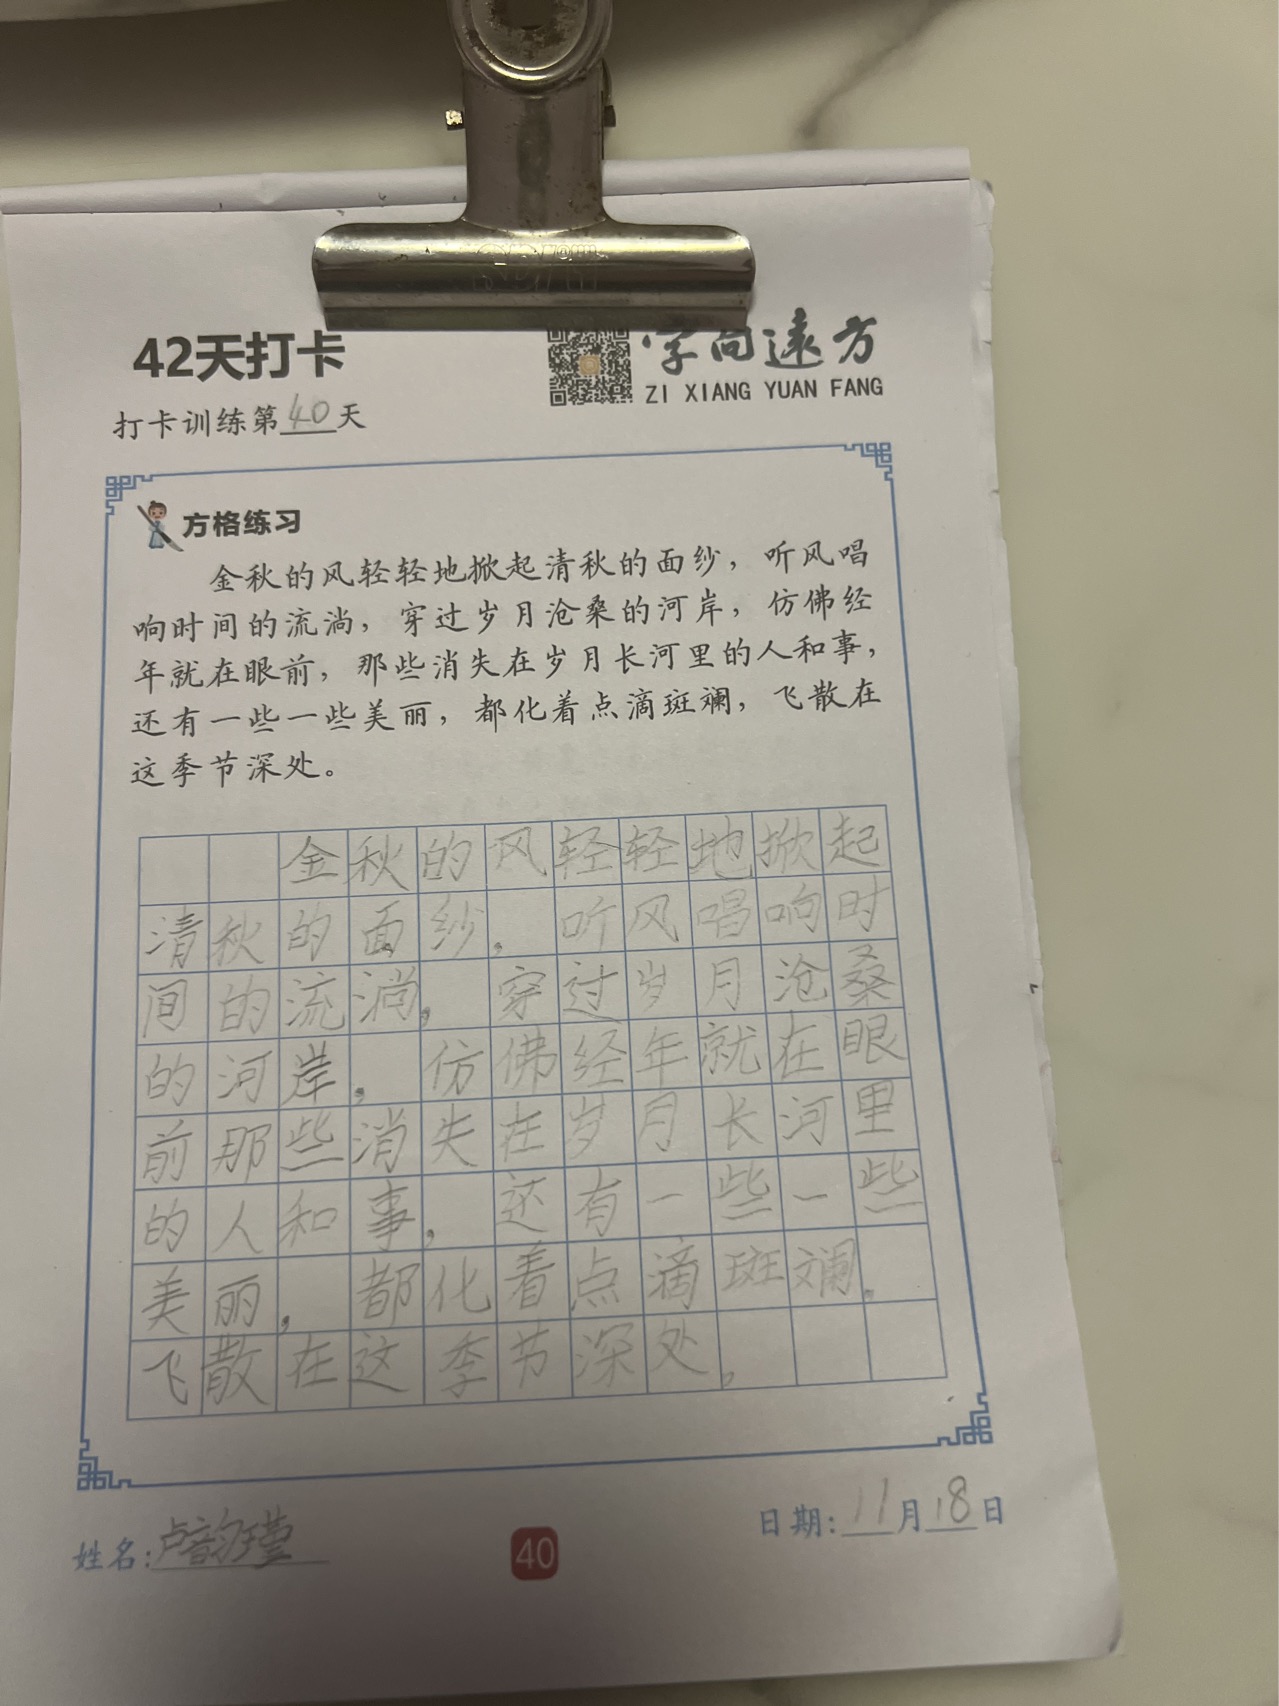 42天打卡
字向遠方
ZI XIANG YUAN FANG
打卡训练第40天
方格练习
金秋的风轻轻地掀起清秋的面纱，听风唱
响时间的流淌，穿过岁月沧桑的河岸，仿佛经
年就在眼前，那些消失在岁月长河里的人和事，
还有一些一些美丽，都化着点滴斑斓，飞散在
这季节深处。
金秋的风轻轻地掀起
清秋的面纱，听风唱响时
间的流淌，穿过岁月沧桑
的河岸，仿佛经年就在眼
前那些消失在岁月长河里
的人和事，还有一些一些
美丽，都化着点滴斑斓，
飞散在这季节深处。
姓名：卢韵瑾
40
日期：11月18日